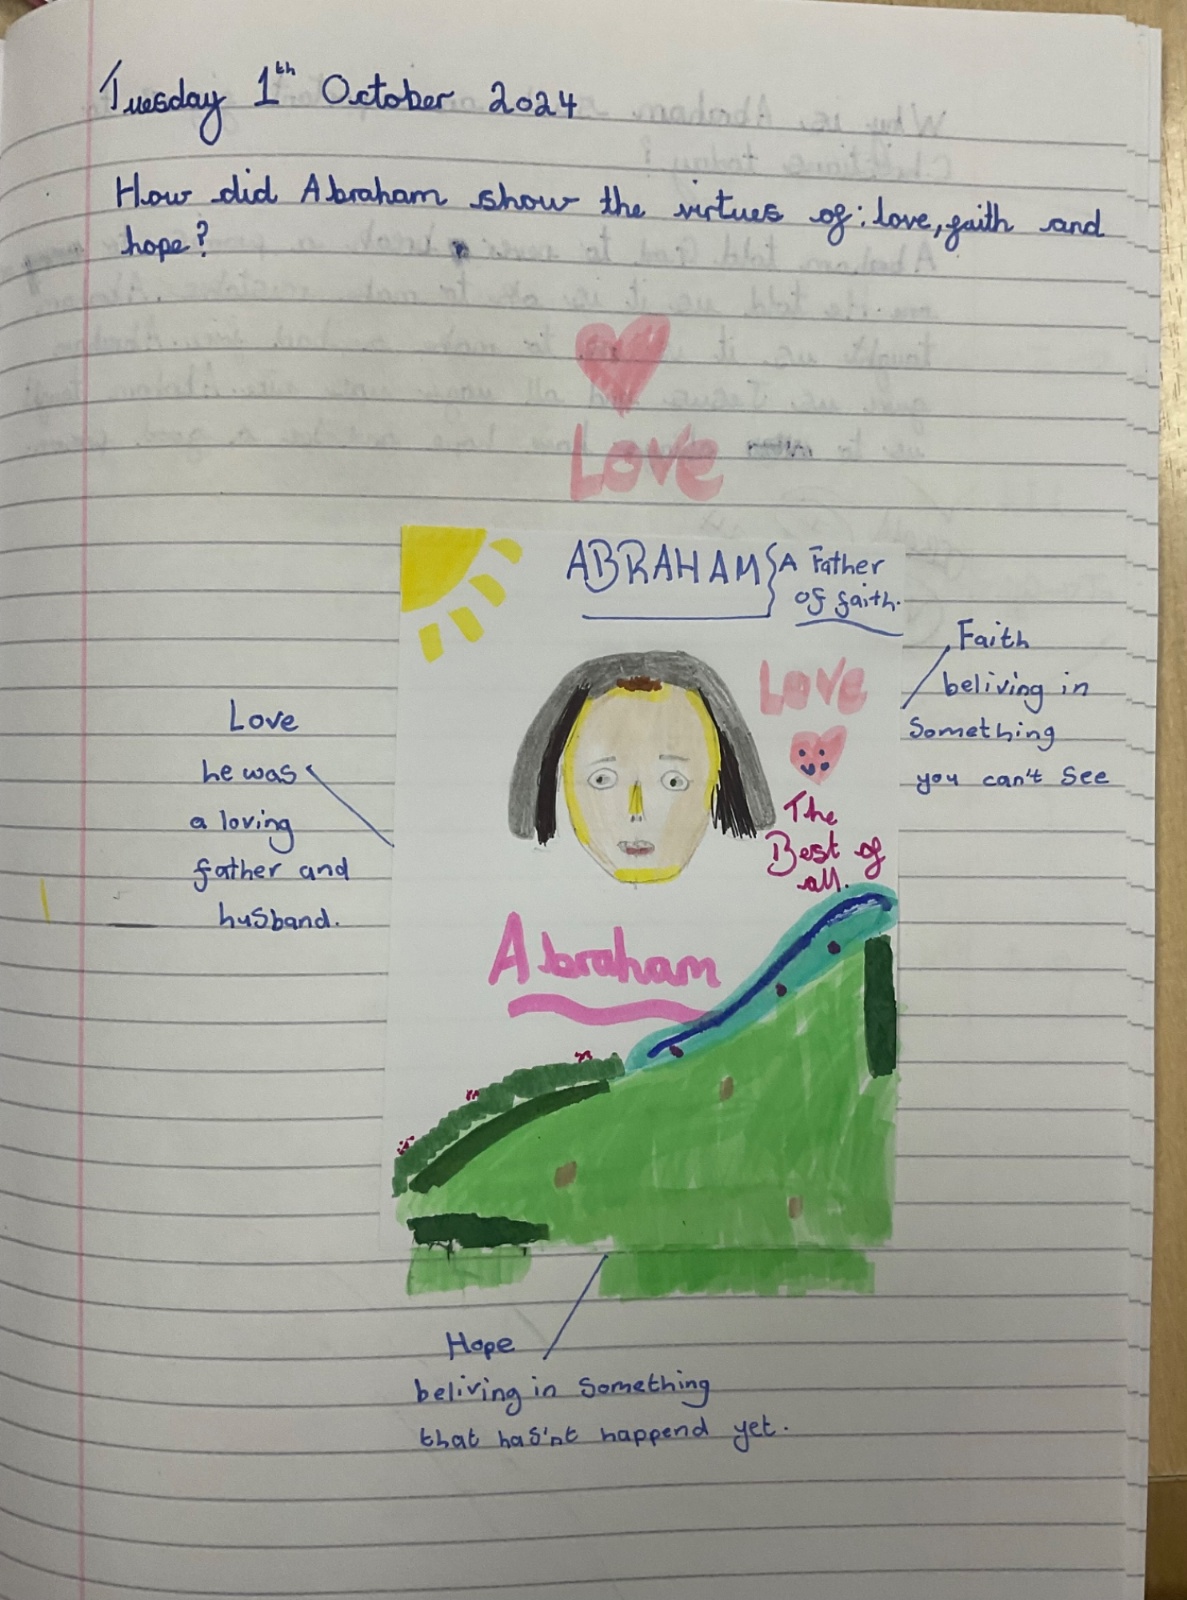 Tuesday 1th October 2024
How did Abraham show the virtues of: love, faith and
hope?
Love
ABRAHAM } A Father
of faith.
Love
The
Best of
all.
Abraham
Faith
beliving in
Something
you can't See
Love
he was
a loving
father and
husband.
Hope
beliving in Something
that has'nt happend yet.